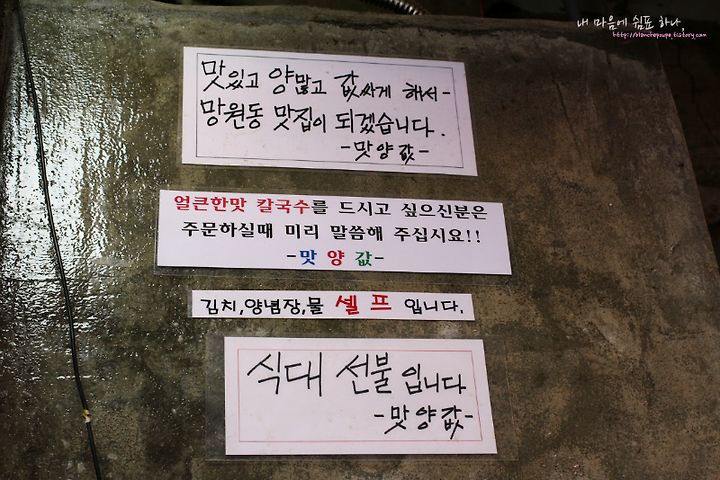 내 마음에 쉼표 하나.
http://blanchepoupe.tistory.com
맛있고 양많고 값싸게 해서-
망원동 맛집이 되겠습니다.
-맛양값-
얼큰한맛 칼국수를 드시고 싶으신분은
주문하실때 미리 말씀해 주십시요!!
-맛양값-
김치,양념장,물 셀프 입니다.
식대 선불입니다
-맛양값-